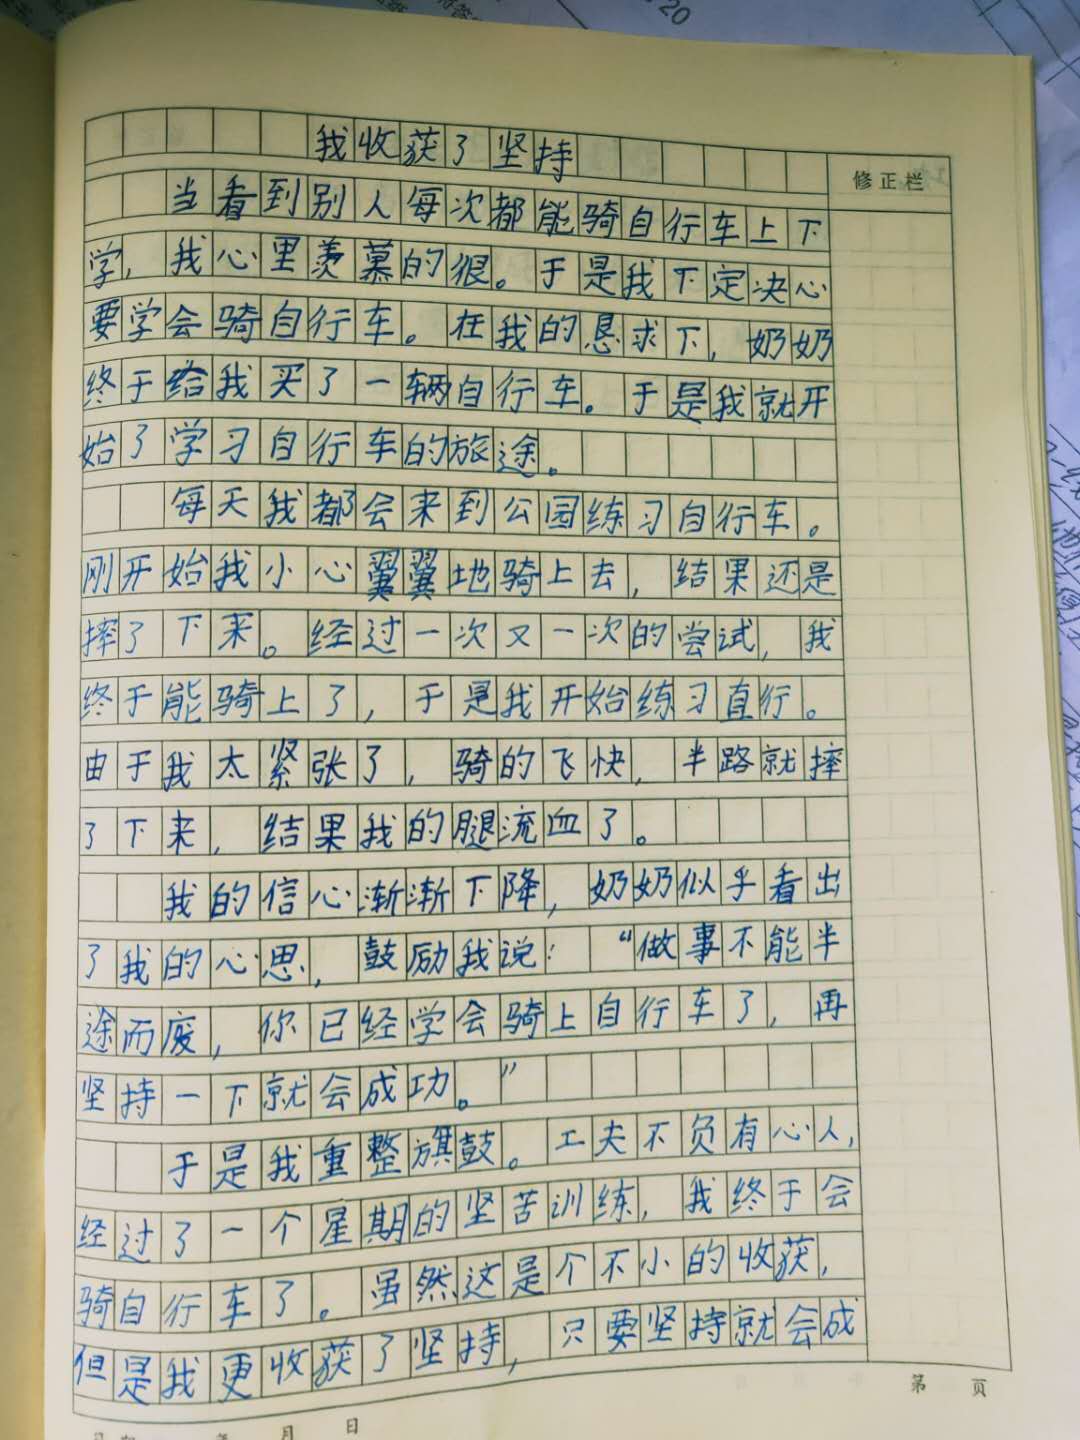 我收获了坚持
修正栏
当看到别人每次都能骑自行车上下
学，我心里羡慕的很。于是我下定决心
要学会骑自行车。在我的恳求下，奶奶
终于给我买了一辆自行车。于是我就开
始了学习自行车的旅途。
每天我都会来到公园练习自行车。
刚开始我小心翼翼地骑上去，结果还是
摔了下来。经过一次又一次的尝试，我
终于能骑上了，于是我开始练习直行。
由于我太紧张了，骑的飞快，半路就摔
了下来，结果我的腿流血了。
我的信心渐渐下降，奶奶似乎看出
了我的心思，鼓励我说：“做事不能半
途而废，你已经学会骑上自行车了，再
坚持一下就会成功。”
于是我重整旗鼓。工夫不负有心人，
经过了一个星期的坚苦训练，我终于会
骑自行车了。虽然这是个不小的收获，
但是我更收获了坚持，只要坚持就会成
第 页
年 月 日
20